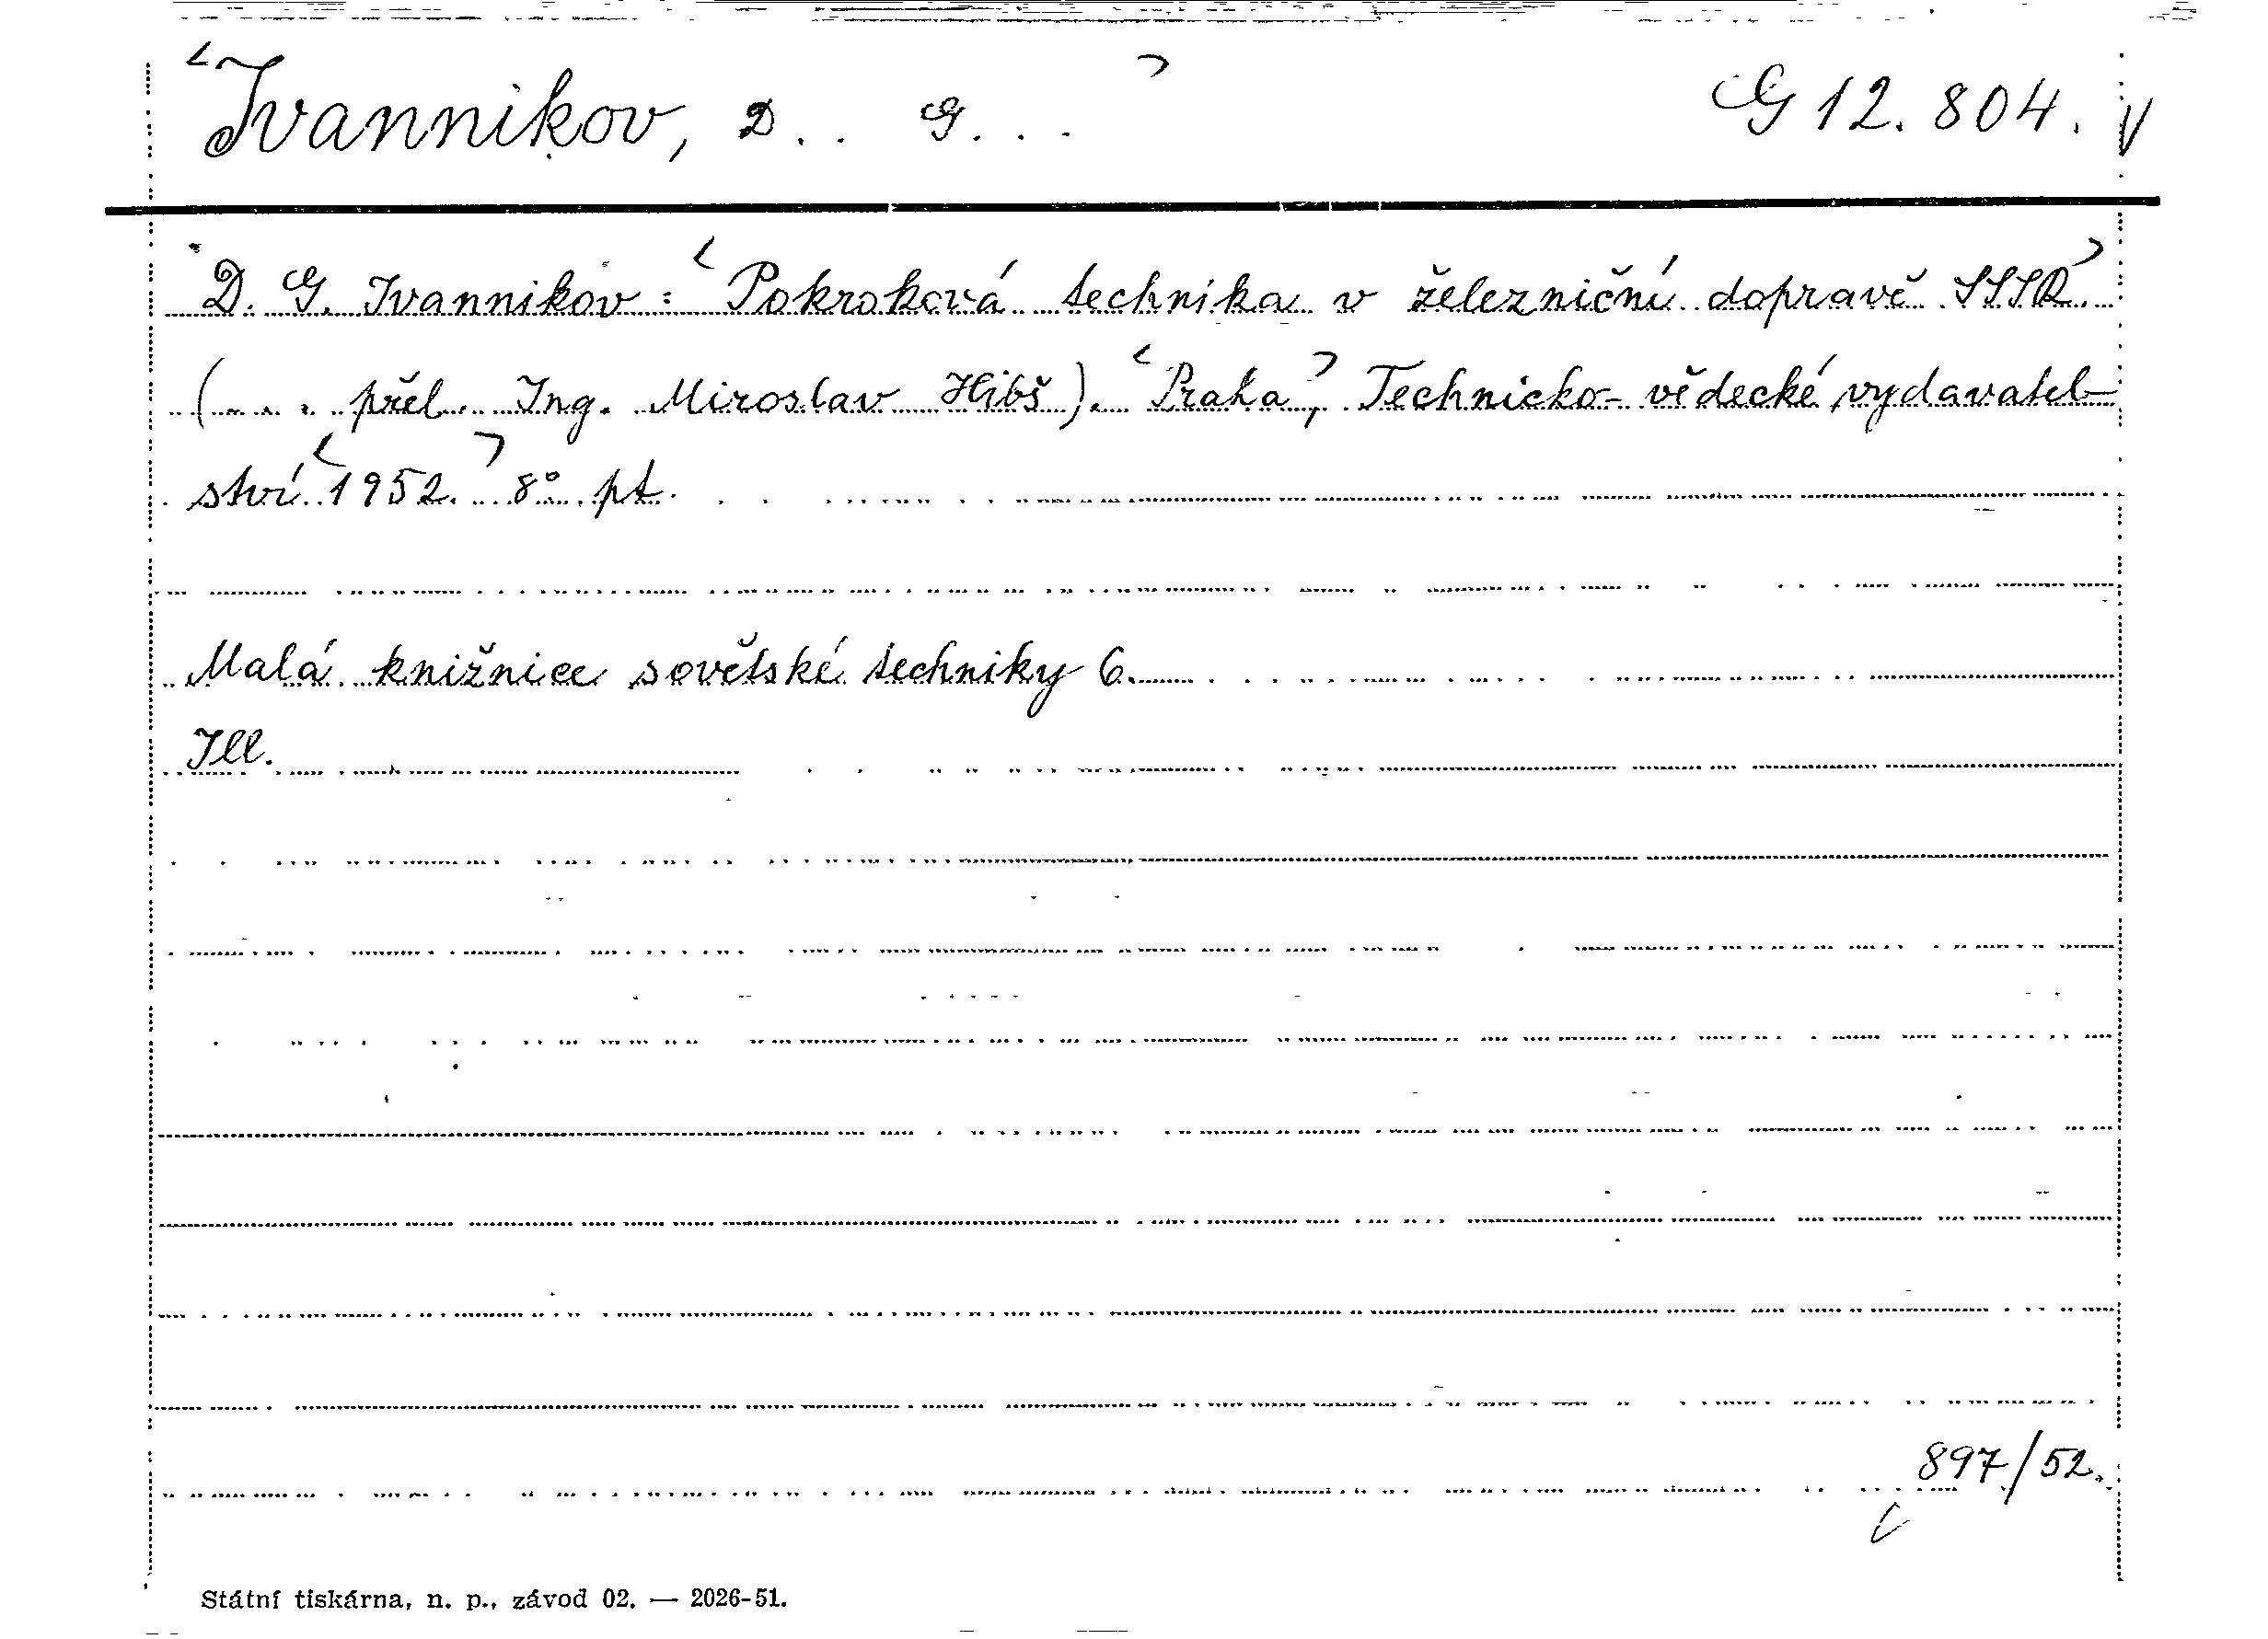 Ivannikov, D. . G. . .
G 12.804.
D. G. Ivannikov: Pokroková technika v železniční dopravě SSSR.
(... přel. Ing. Miroslav Hibš). Praha, Technicko-vědecké vydavatel-
ství 1952. 8° pt.
Malá knižnice sovětské techniky 6.
Ill.
897/52.
Státní tiskárna, n. p., závod 02. — 2026-51.